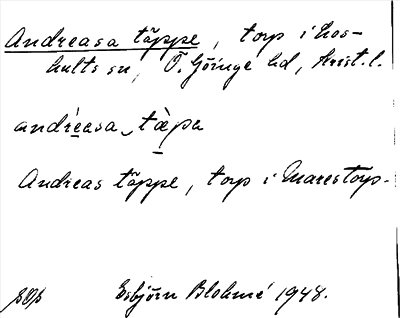 Andreasa täppe, torp i Loshults sn, Ö. Göinge hd, Krist. l.
andrèasa tàpa
Andreas täppe, torp i Marestorp.
Esbjörn Blohmé 1948.